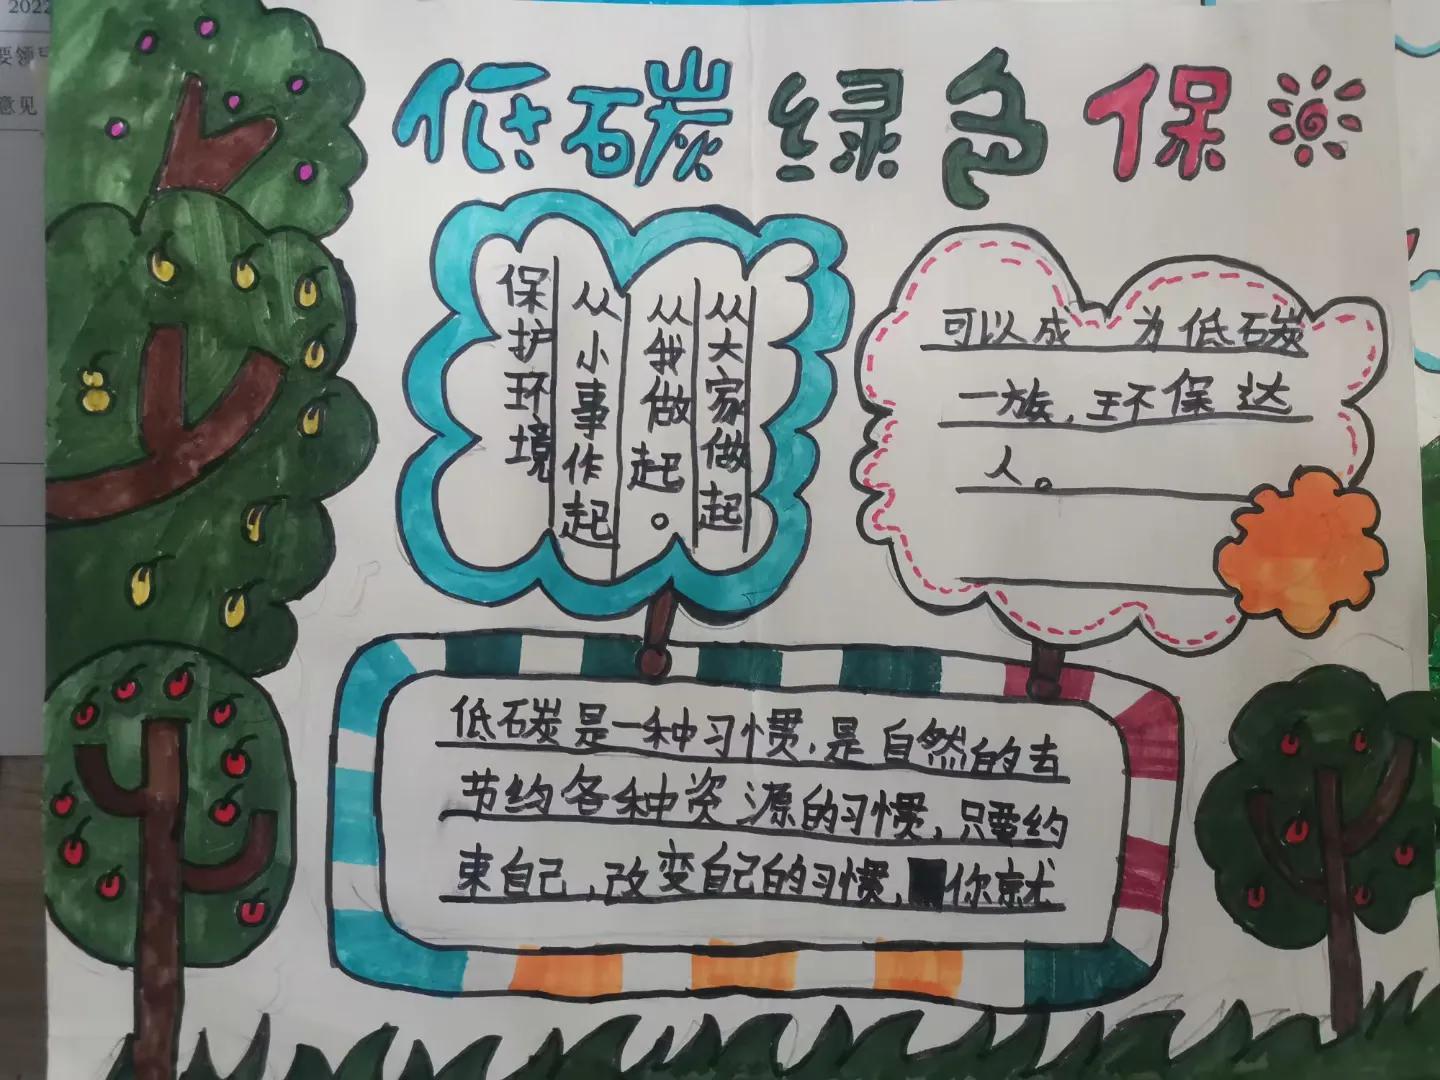 2022
要领导
意见
低碳绿色保
保护环境
从小事作起
从我做起。
从大家做起
低碳是一种习惯，是自然的去
节约各种资源的习惯，只要约
束自己，改变自己的习惯，你就
可以成为低碳
一族，环保达
人。